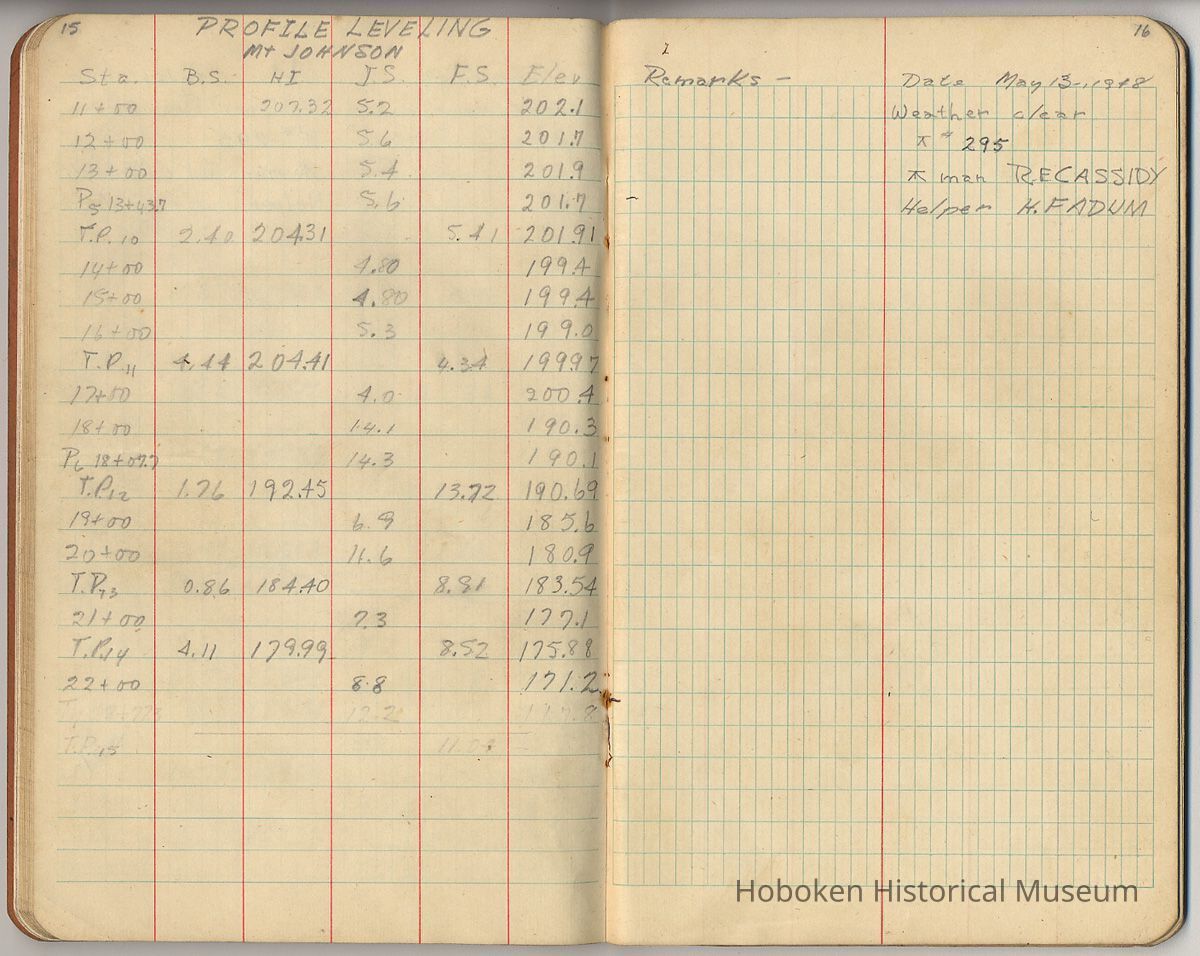 15
PROFILE LEVELING
Mt JOHNSON
Sta. B.S. HI I.S. F.S. Elev
11+00 207.32 5.2 202.1
12+00 5.6 201.7
13+00 5.4 201.9
P5 13+43.7 5.6 201.7
T.P.10 2.40 204.31 5.41 201.91
14+00 4.80 199.4
15+00 4.80 199.4
16+00 5.3 199.0
T.P.11 4.44 204.41 4.34 199.97
17+00 4.0 200.4
18+00 14.1 190.3
P6 18+07.7 14.3 190.1
T.P.12 1.76 192.45 13.72 190.69
19+00 6.9 185.6
20+00 11.6 180.9
T.P.13 0.86 184.40 8.91 183.54
21+00 7.3 177.1
T.P.14 4.11 179.99 8.52 175.88
22+00 8.8 171.2
12.2
T.P.15
16
Remarks -
Date May 13-, 1948
Weather clear
⊼ # 295
⊼ man R.E. CASSIDY
Helper H. FADUM
Hoboken Historical Museum